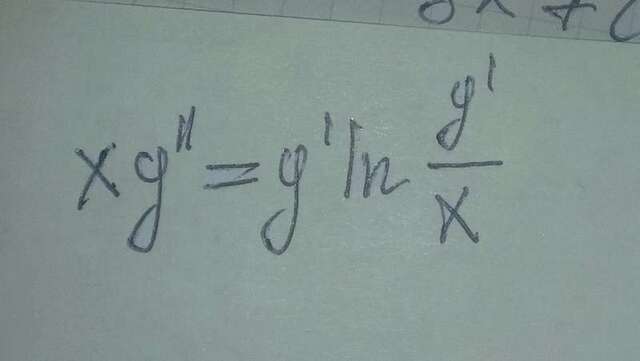 xy'' = y' ln y'/x